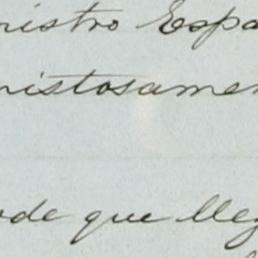 nistro Espa
ristosamen
de que lleg